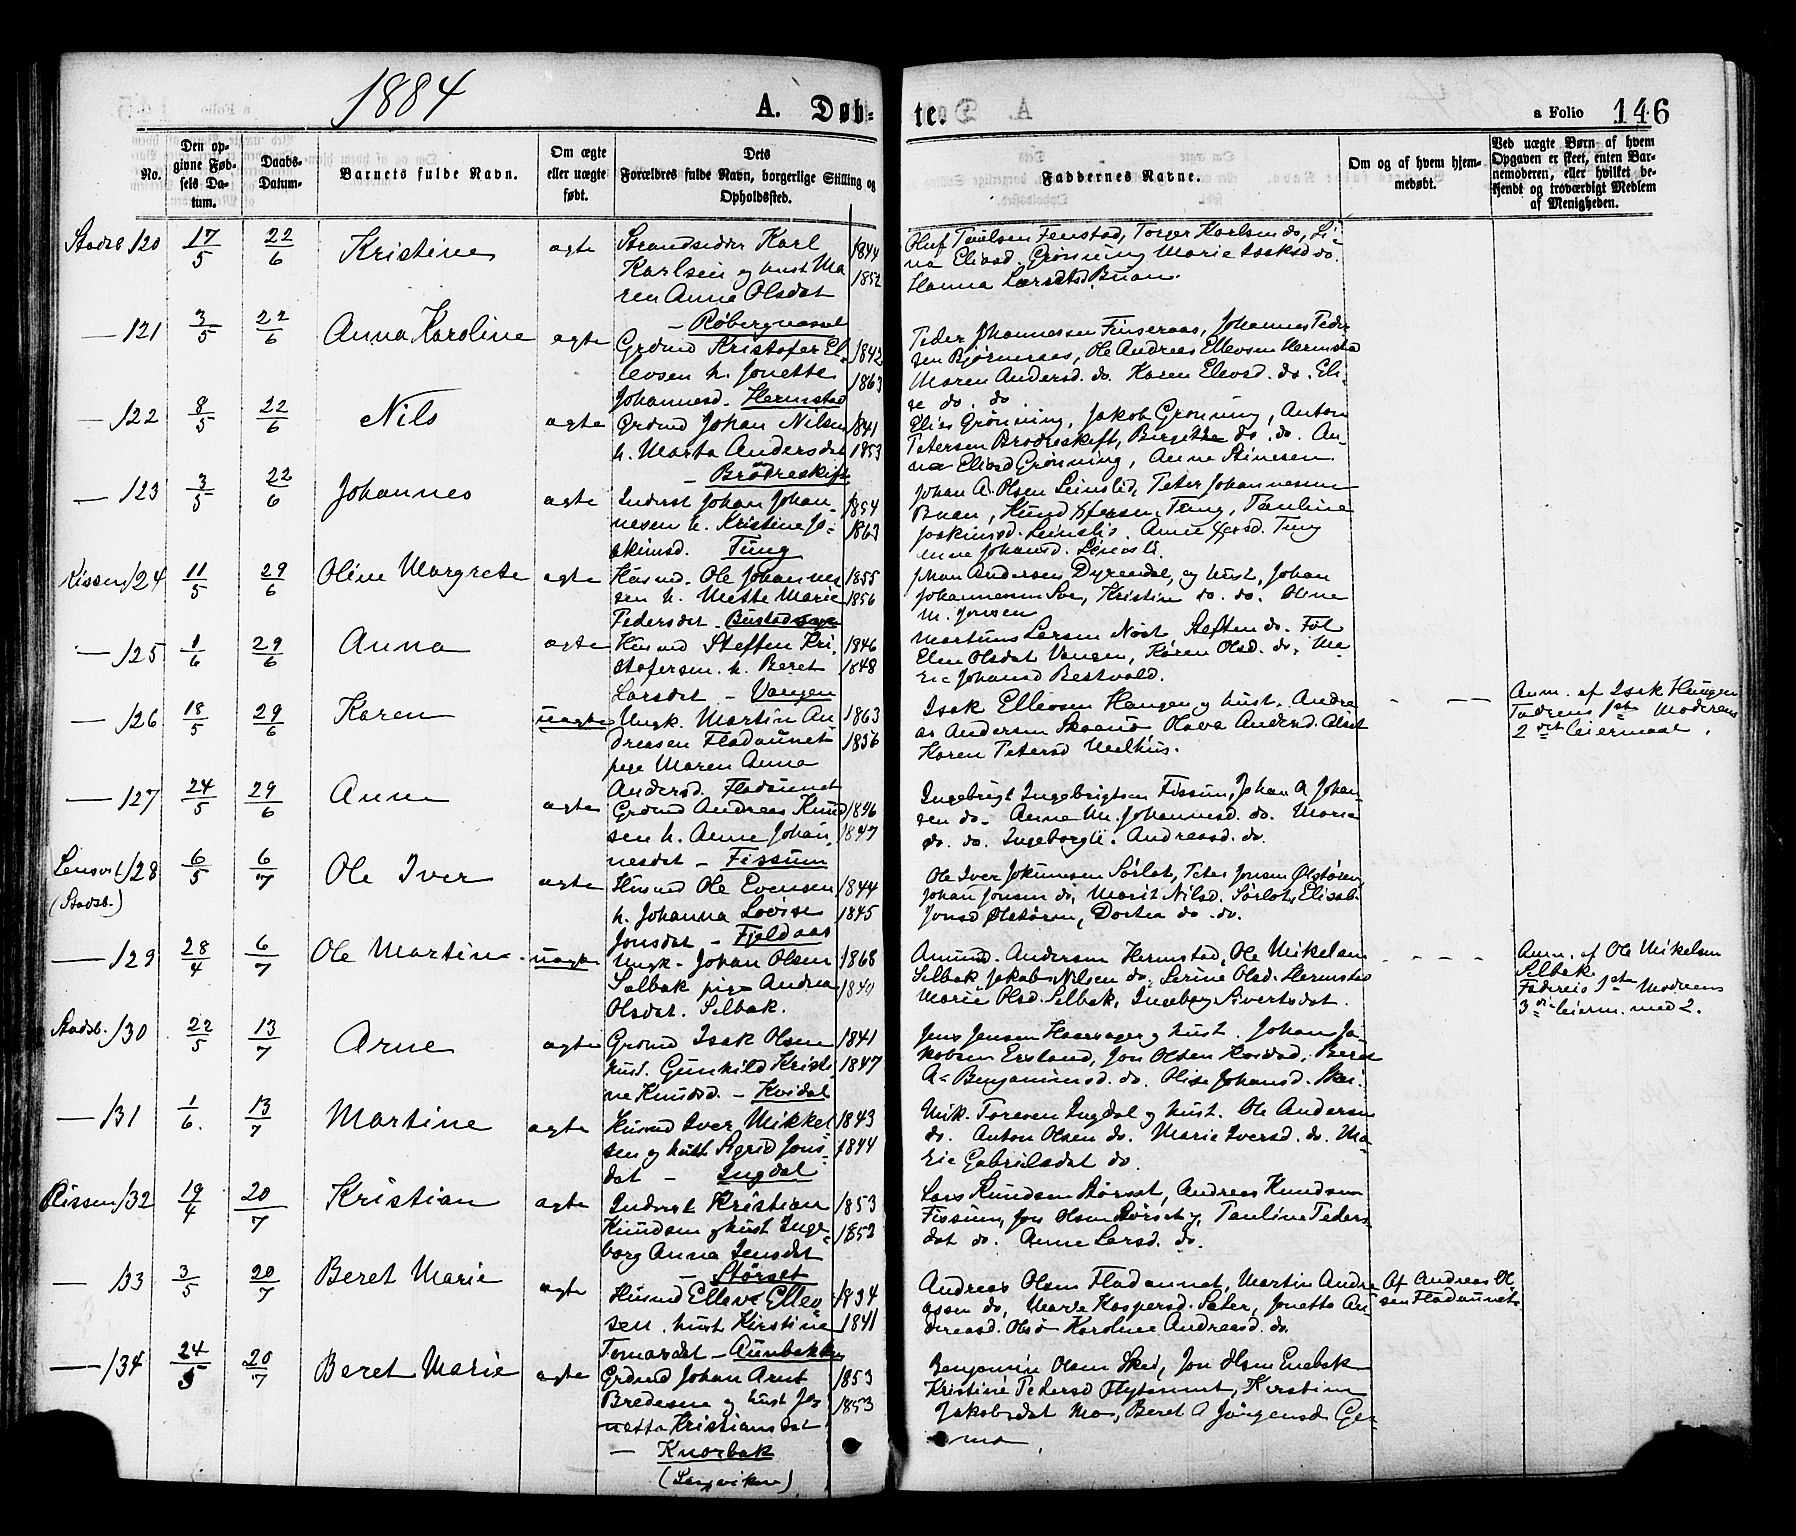 1884 A. Døb- te. a Folio 146
No. Den opgivne Fødsels Datum. Daabs-Datum. Barnets fulde Navn. Om ægte eller uægte født. Dets Forældres fulde Navn, borgerlige Stilling og Opholdssted. Faddernes Navne. Om og af hvem hjemmedøbt. Ved uægte Børn af hvem Opgaven er skeet, enten Barnemoderen, eller hvilket bekjendt og troværdigt Medlem af Menigheden.
Stadsb. 120 17/5 22/6 Kristine ægte Strandsidder Karl 1844
Karlsen og hust Ma 1852
ren Anna Olsdat
- Røbergvassel
Oluf Fenstad, Torger Karlsen do, Li-
na Eliasd. Grønning Marie Isaksd do.
Hanna Larsdtd Buan.
— 121 3/5 22/6 Anna Karoline ægte Grdmd Kristofer El- 1842
levsen h. Jonette 1863
Johannesd. Hermstad
Peder Johannessen Finseraas, Johannes Peder
sen Bjørneraas, Ole Andreas Ellevsen Hermstad
Maren Andersd. do. Karen Elevsd. do. Eli-
se do. do.
— 122 8/5 22/6 Nils ægte Grdmd Johan Nilsen 1841
h. Marta Andersdat 1853
- Brødreskift
Elias Grønning, Jakob Grønning, Anton
Petersen Brødreskift, Birgitte do. do. An-
na Eliasd Grønning, Anne Stinesen
— 123 3/5 22/6 Johannes ægte Inderst Johan Johan- 1854
nesen h. Kristine Jo- 1863
akimsd. Tung
Johan A. Olsen Leinslid, Peter Johannessen
Buan, Tung, Pauline
Joakimsd. Leinslid. Anne Tung
Johansd.
Rissen 124 11/5 29/6 Oline Margrete ægte Husmd. Ole Johannes 1855
sen h. Mette Marie 1856
Pedersdt.
Johan Andersen Dyrendal, og hust, Johan
Johannessen Soe, Kristine do. do. Oline
M. Jonsen
— 125 1/6 29/6 Anna ægte Husmd Steffen Kri 1846
stofersen. h. Beret 1848
Larsdat - Vangen
Martinus Larsen Nøst, Steffen do.
Elen Olsdat Vangen, Karen Olsd. do, Ma
rie Johansd Bestvold.
— 126 18/5 29/6 Karen uægte Ungk. Martin An 1863
dreasen Fladaunet 1856
pige Maren Anna
Andersd. Fladaunet
Isak Ellevsen Haugen og hust. Andre
as Andersen Skaund Olava Andersd.
Karen Petersd Melhus.
Anm. af Isak Haugen
Fadrens 1ste Moderens
2det Leiermaal.
— 127 24/5 29/6 Anne ægte Grdmd Andreas Knud 1846
sen h. Anne Johan 1847
nesdat - Fissum
Ingebrigt Ingebrigtsen Fissum, Johan A Johan-
sen do. Anne M. Johannesd. do. Maria
do. do. Ingeborg Andreasd. do.
Lensvik 128 (Stadsb.) 6/5 6/7 Ole Iver ægte Husmd Ole Evensen 1844
h. Johanna Lovise 1845
Jonsdat - Fjeldaas
Ole Iver Jokumsen Sørlot, Peter Jonsen Olstøren
Johan Jonsen do, Marit Nilsd. Sørlot, Elisab.
Jonsd Olstøren, Dortea do. do.
— 129 28/4 6/7 Ole Martin uægte Ungk. Johan Olsen 1868
Selbak pige Andrea 1840
Olsdat. Selbak.
Amund. Andersen Hermstad, Ole Mikelsen
Selbak Jakob Nilsen do, Serine Olsd. Hermstad
Marie Olsd. Selbak, Ingeborg Sivertsdat.
Anm. af Ole Mikelsen
Selbak
Faderens 1ste Moderens
3die Leierm. med 2.
Stadsb. 130 22/5 13/7 Arne ægte Grdmd Isak Olsen 1841
hust. Gunhild Kristi- 1847
ne Knudsd. - Kvidal
Jens Jensen og hust. Johan Ja-
kobsen Eresland, Jon Olsen Kvidal, Beret
A. Benjaminsd. do. Olise Johansd.
— 131 1/6. 13/7 Martine ægte Husmd Iver Mikkel 1843
sen og hust Sigrid Jons- 1844
dat - Ingdal
Mik. Toresen Ingdal og hust. Ole Andersen
do. Anton Olsen do. Marie Iversd. do. Ma-
rie Gabrielsdat do.
Rissen 132 19/4 20/7 Kristian ægte Inderst Kristian 1853
Knudsen og hust Inge- 1853
borg Anna Jensdat
- Størset
Lars Knudsen Størset, Andreas Knudsen
Fissum, Jon Olsen Størset, Pauline Peders-
dat do. Anne Larsd. do.
— 133 3/5 20/7 Beret Marie ægte Husmd Ellev Ellev 1834
sen. hust Kirstine 1841
Tomasdat - Aunbakken
Andreas Olsen Fladaunet, Martin Andre
assen do, Marie Kaspersd. Sæter, Jonette An
dreasd. Olsø Karoline Andreasd. do.
Af Andreas Ol
sen Fladaunet
— 134 24/5 20/7 Beret Marie ægte Grdmd Johan Arnt 1853
Bredesen og hust Jo- 1853
netta Kristiansdat
- Knorbak
(Lensviken)
Benjamin Olsen Skei, Jon Olsen Enebak
Kristine Pedersd Flytunmet, Kirstine
Jakobsdat Mo, Beret A Jørgensd.